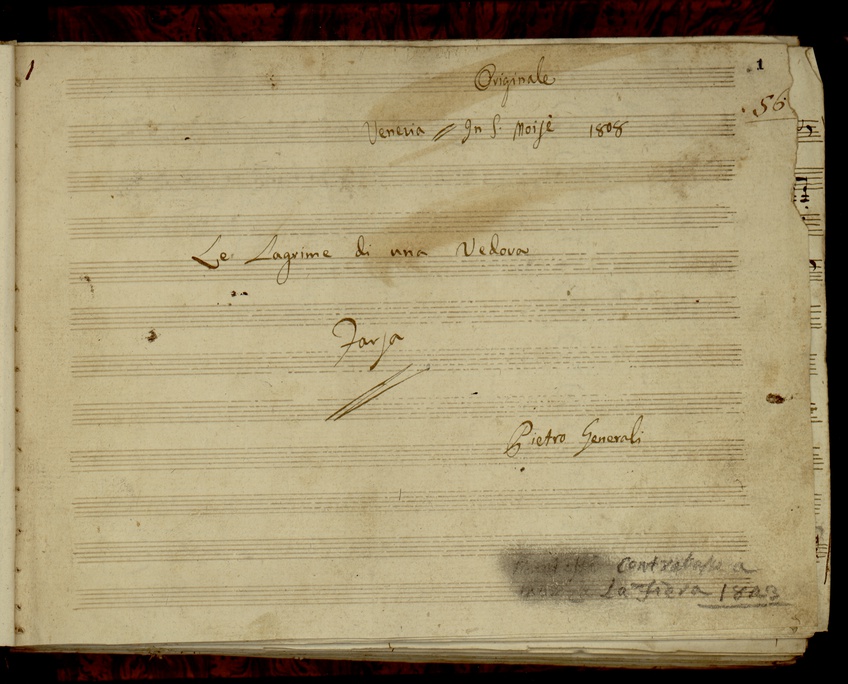 1
Originale
1
56
Venezia // In S. Moisè 1808
Le Lagrime di una Vedova
Farsa
Pietro Generali
contrabasse a
La fiera 1823